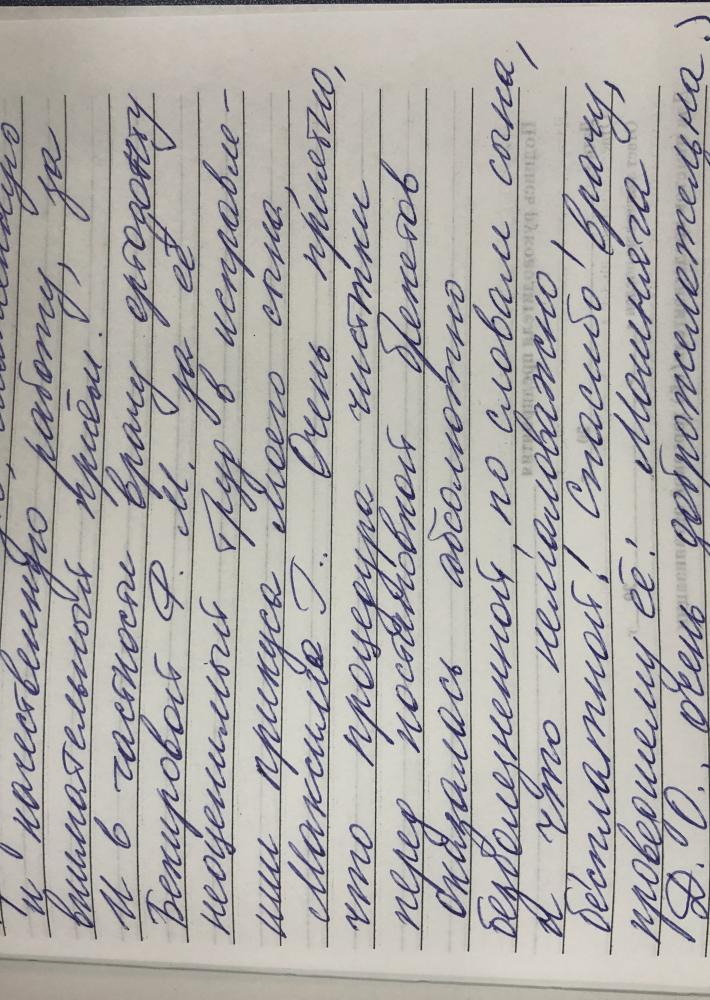 и качественную работу, за
внимательный приём.
И в частности врачу ортодонту
Бекировой Ф. М. за её
неоценимый труд в исправле-
нии прикуса моего сына
Максима Г.. Очень приятно,
что процедура чистки
перед постановкой брекетов
оказалась абсолютно
безболезненной по словам сына,
а что немаловажно,
бесплатной! Спасибо врачу,
проведшему её! Мошняга
Д. О., очень доброжелательна.)